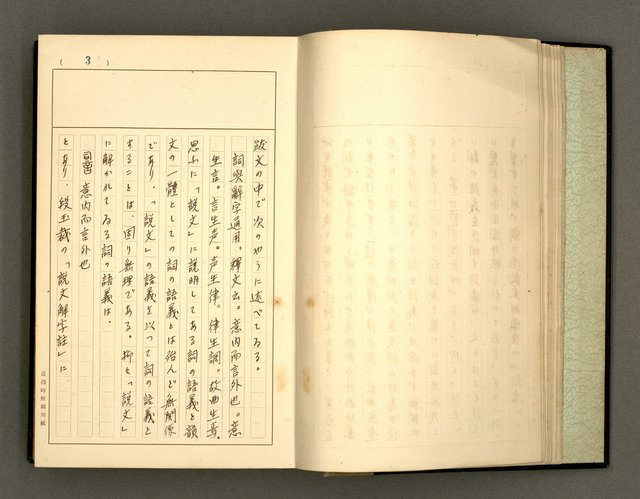 ( 3 )
跋文の中で次のやうに述べてゐる。
詞與辭字通用。釋文云。意内而言外也。意
生言。言生声。声生律。律生調。故曲生焉。
思ふに「説文」に説明してある詞の語義と韻
文の一體としての詞の語義とは殆んど無関係
であり、「説文」の語義を以つて詞の語義と
することは、固り無理である。抑も「説文」
に解かれてゐる詞の語義は、
意内而言外也
とあり、段玉裁の「説文解字註」に
黄得時原稿用紙